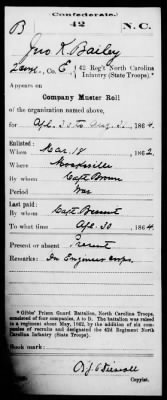 Confederate.
B 42 N.C.
Jno K. Bailey
Co. E, 42 Reg't North Carolina
Infantry (State Troops).*
Appears on
Company Muster Roll
of the organization named above,
for Apl. 30 to Aug. 31, 1864.
Enlisted:
When Mar. 18, 1862.
Where Mocksville
By whom Capt Brown
Period War
Last paid:
By whom Capt
To what time Apl. 30, 1864.
Present or absent Present
Remarks: In Engineer Corps.
*Gibbs' Prison Guard Battalion, North Carolina Troops,
consisted of four companies, A to D. The battalion was raised
to a regiment about May, 1862, by the addition of six com-
panies of recruits and designated the 42d Regiment North
Carolina Infantry (State Troops).
Book mark:
Copyist.